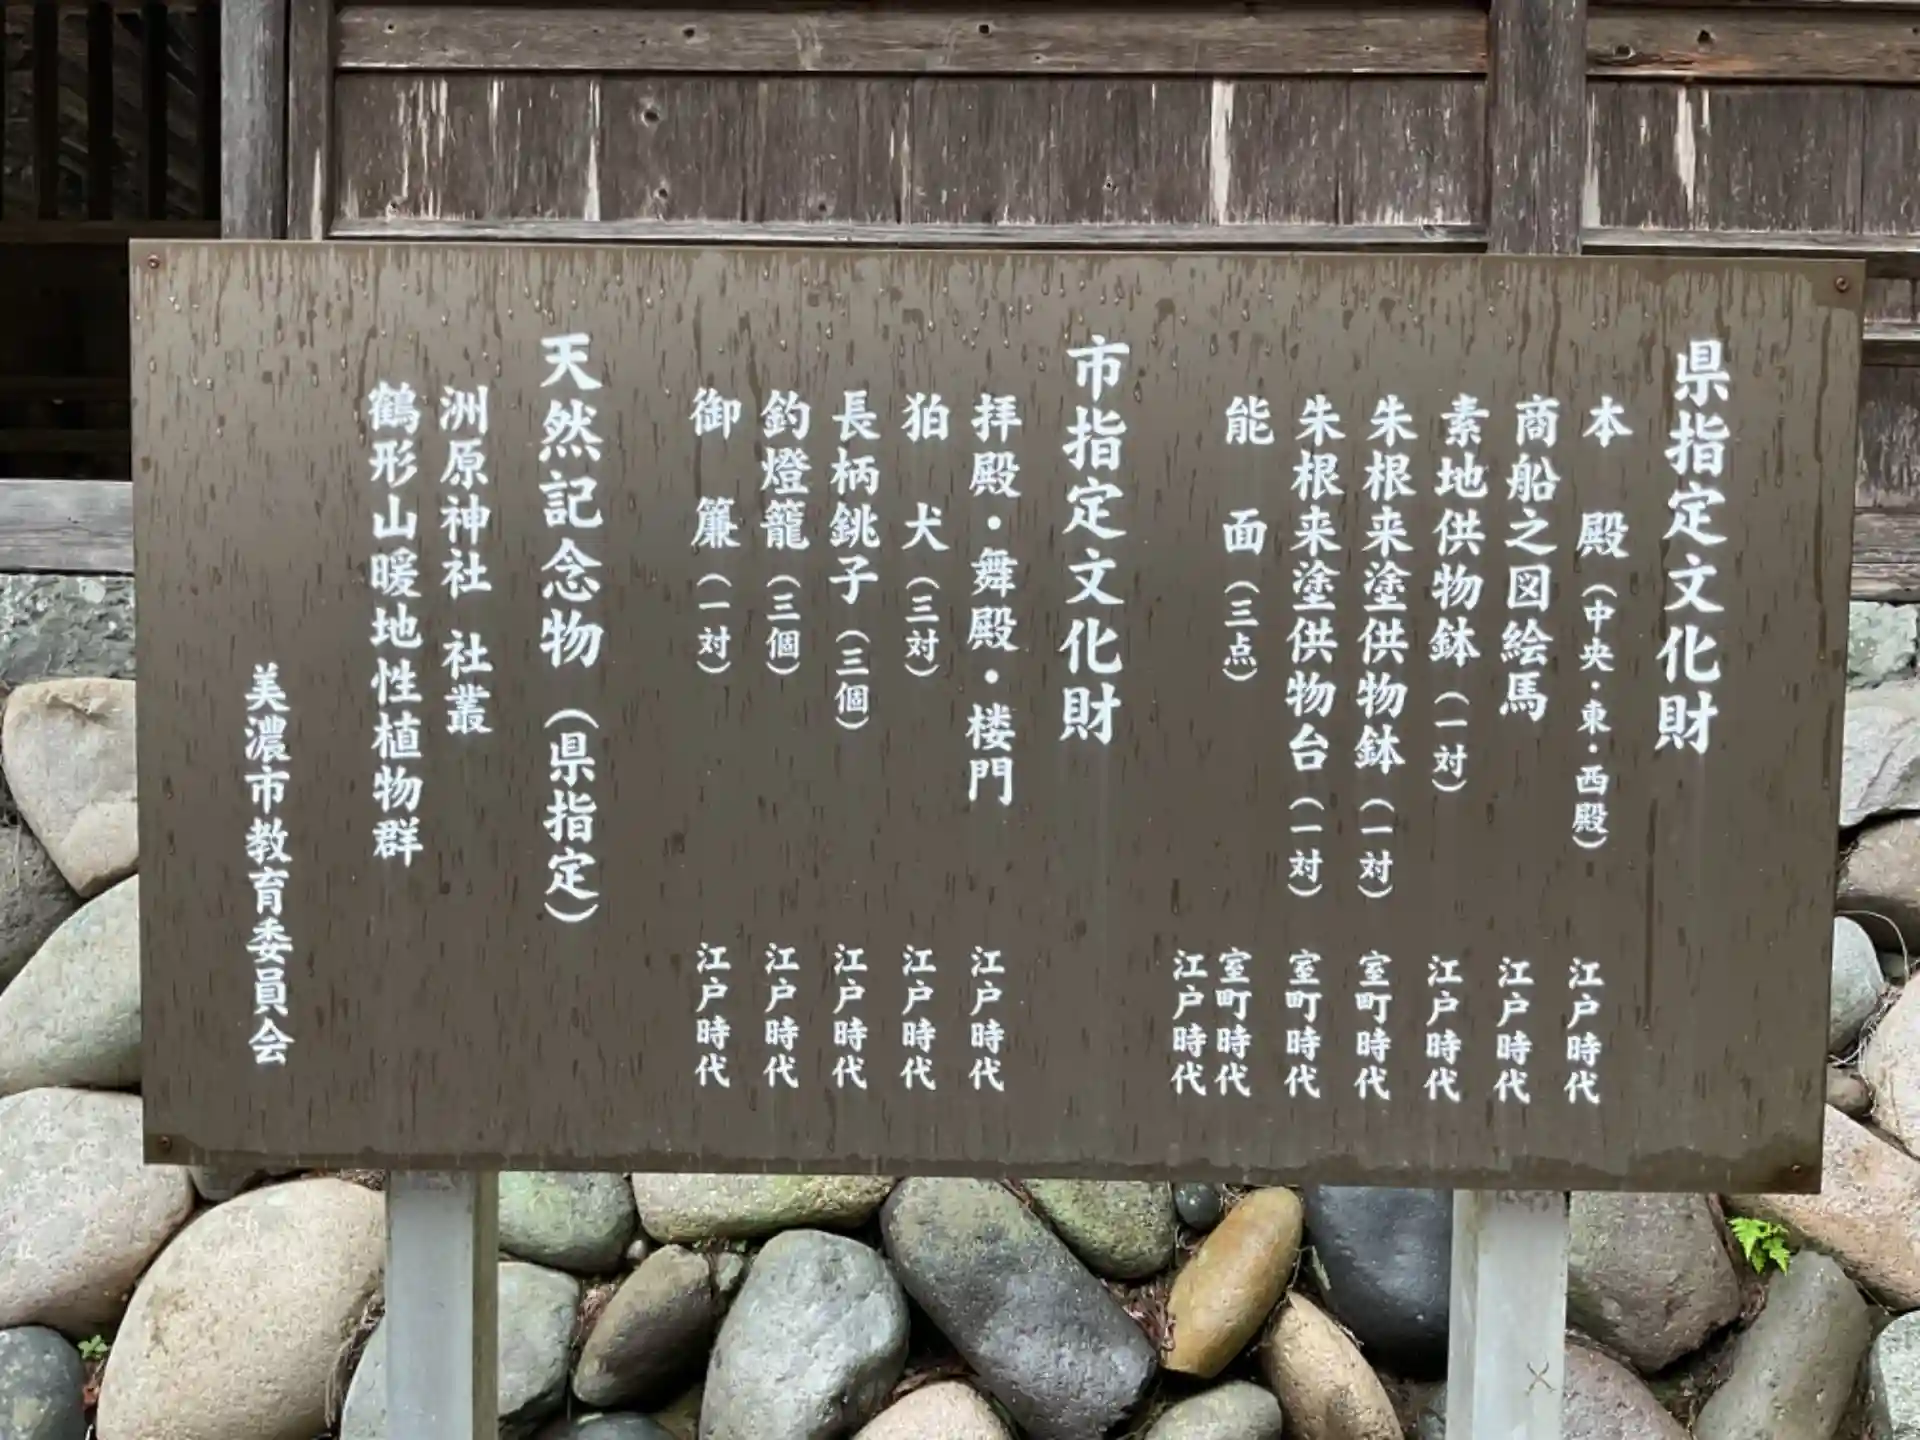 県指定文化財
本殿（中央・東・西殿） 江戸時代
商船之図絵馬 江戸時代
素地供物鉢（一対） 江戸時代
朱根来塗供物鉢（一対） 室町時代
朱根来塗供物台（一対） 室町時代
能面（三点） 室町時代
江戸時代
市指定文化財
拝殿・舞殿・楼門 江戸時代
狛犬（三対） 江戸時代
長柄銚子（三個） 江戸時代
釣燈籠（三個） 江戸時代
御簾（一対） 江戸時代
天然記念物（県指定）
洲原神社 社叢
鶴形山暖地性植物群
美濃市教育委員会